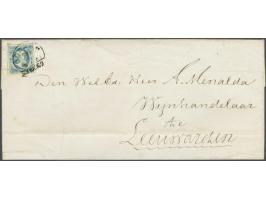 Den Wel Ed. Heer A. Menalda
Wijnhandelaar
te
Leeuwarden